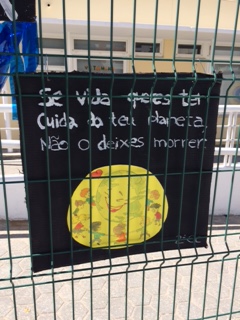 Se vida queres ter
Cuida do teu planeta,
Não o deixes morrer!